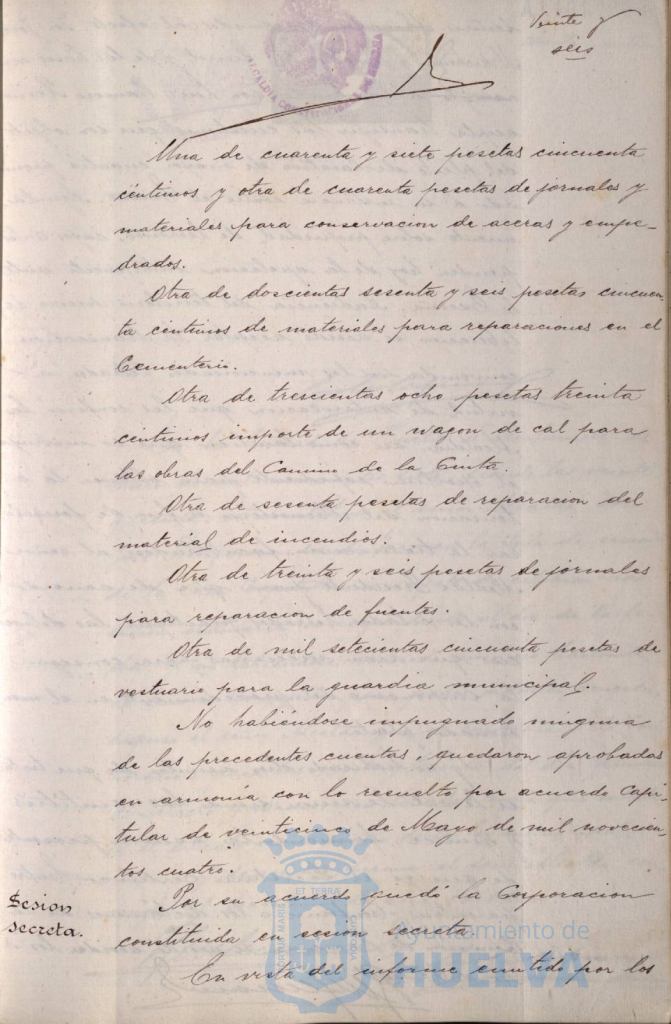 Veinte y
seis
ALCALDIA CONSTITUCIONAL DE HUELVA
Una de cuarenta y siete pesetas cincuenta
céntimos y otra de cuarenta pesetas de jornales y
materiales para conservacion de aceras y empe-
drados.
Otra de doscientas sesenta y seis pesetas cincuen-
ta centimos de materiales para reparaciones en el
Cementerio.
Otra de trescientas ocho pesetas treinta
centimos importe de un wagon de cal para
las obras del Camino de la Cinta.
Otra de sesenta pesetas de reparacion del
material de incendios.
Otra de treinta y seis pesetas de jornales
para reparacion de fuentes.
Otra de mil setecientas cincuenta pesetas de
vestuario para la guardia municipal.
No habiéndose impugnado ninguna
de las precedentes cuentas, quedaron aprobadas
en armonía con lo resuelto por acuerdo Capi-
tular de veinticinco de Mayo de mil novecien-
tos cuatro.
Sesion
secreta.
Por su acuerdo quedó la Corporacion
constituida en sesion secreta.
En vista del informe emitido por los
Ayuntamiento de
HUELVA